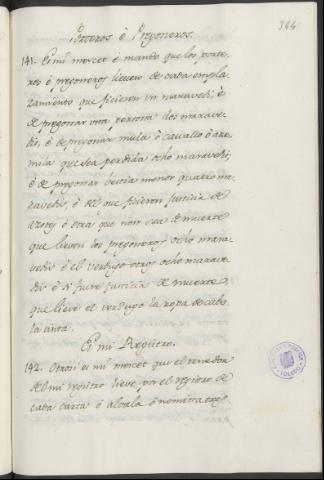 344
Porteros è Pregoneros.
141. Es mi merced è mando que los porte-
ros ò pregoneros lieven de cada empla-
zamiento que ficieren un maravedi; è
de pregonar una persona dos marave-
dis, è de pregonar mula ò cavallo ò aze-
mila que sea perdida ocho maravedis;
è de pregonar bestia menor quatro ma-
ravedis, è del que ficieren justicia de
azotes ò otra que non sea de muerte
que lieven los pregoneros ocho mara-
vedis è el verdugo otros ocho marave-
dis è si fuere justicia de muerte
que lieve el verdugo la ropa de
la cinta.
El mi Registro.
142. Otrosi es mi merced que el tenedor
del mi registro lieve por el registro de
cada carta ò alvala ò nomina
TOLEDO